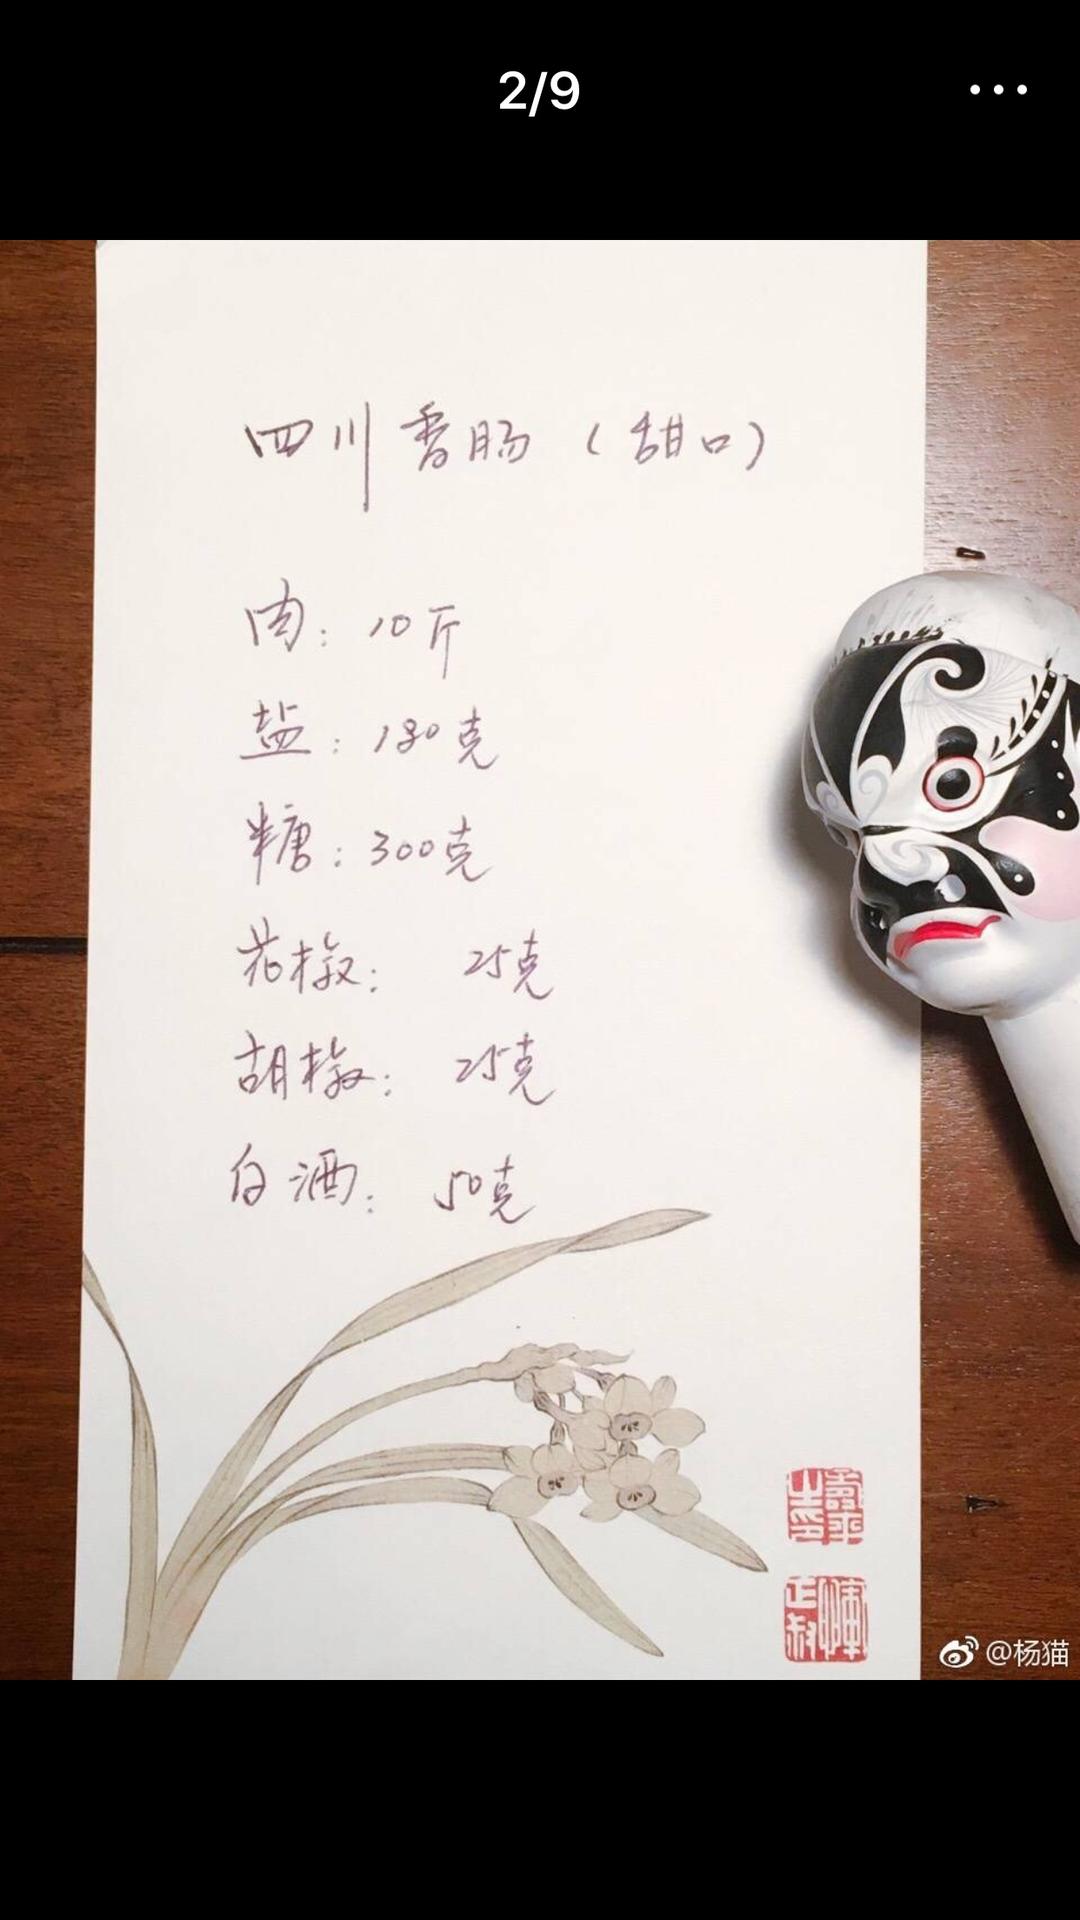 2/9
四川香肠（甜口）
肉：10斤
盐：180克
糖：300克
花椒：25克
胡椒：25克
白酒：50克
@杨猫